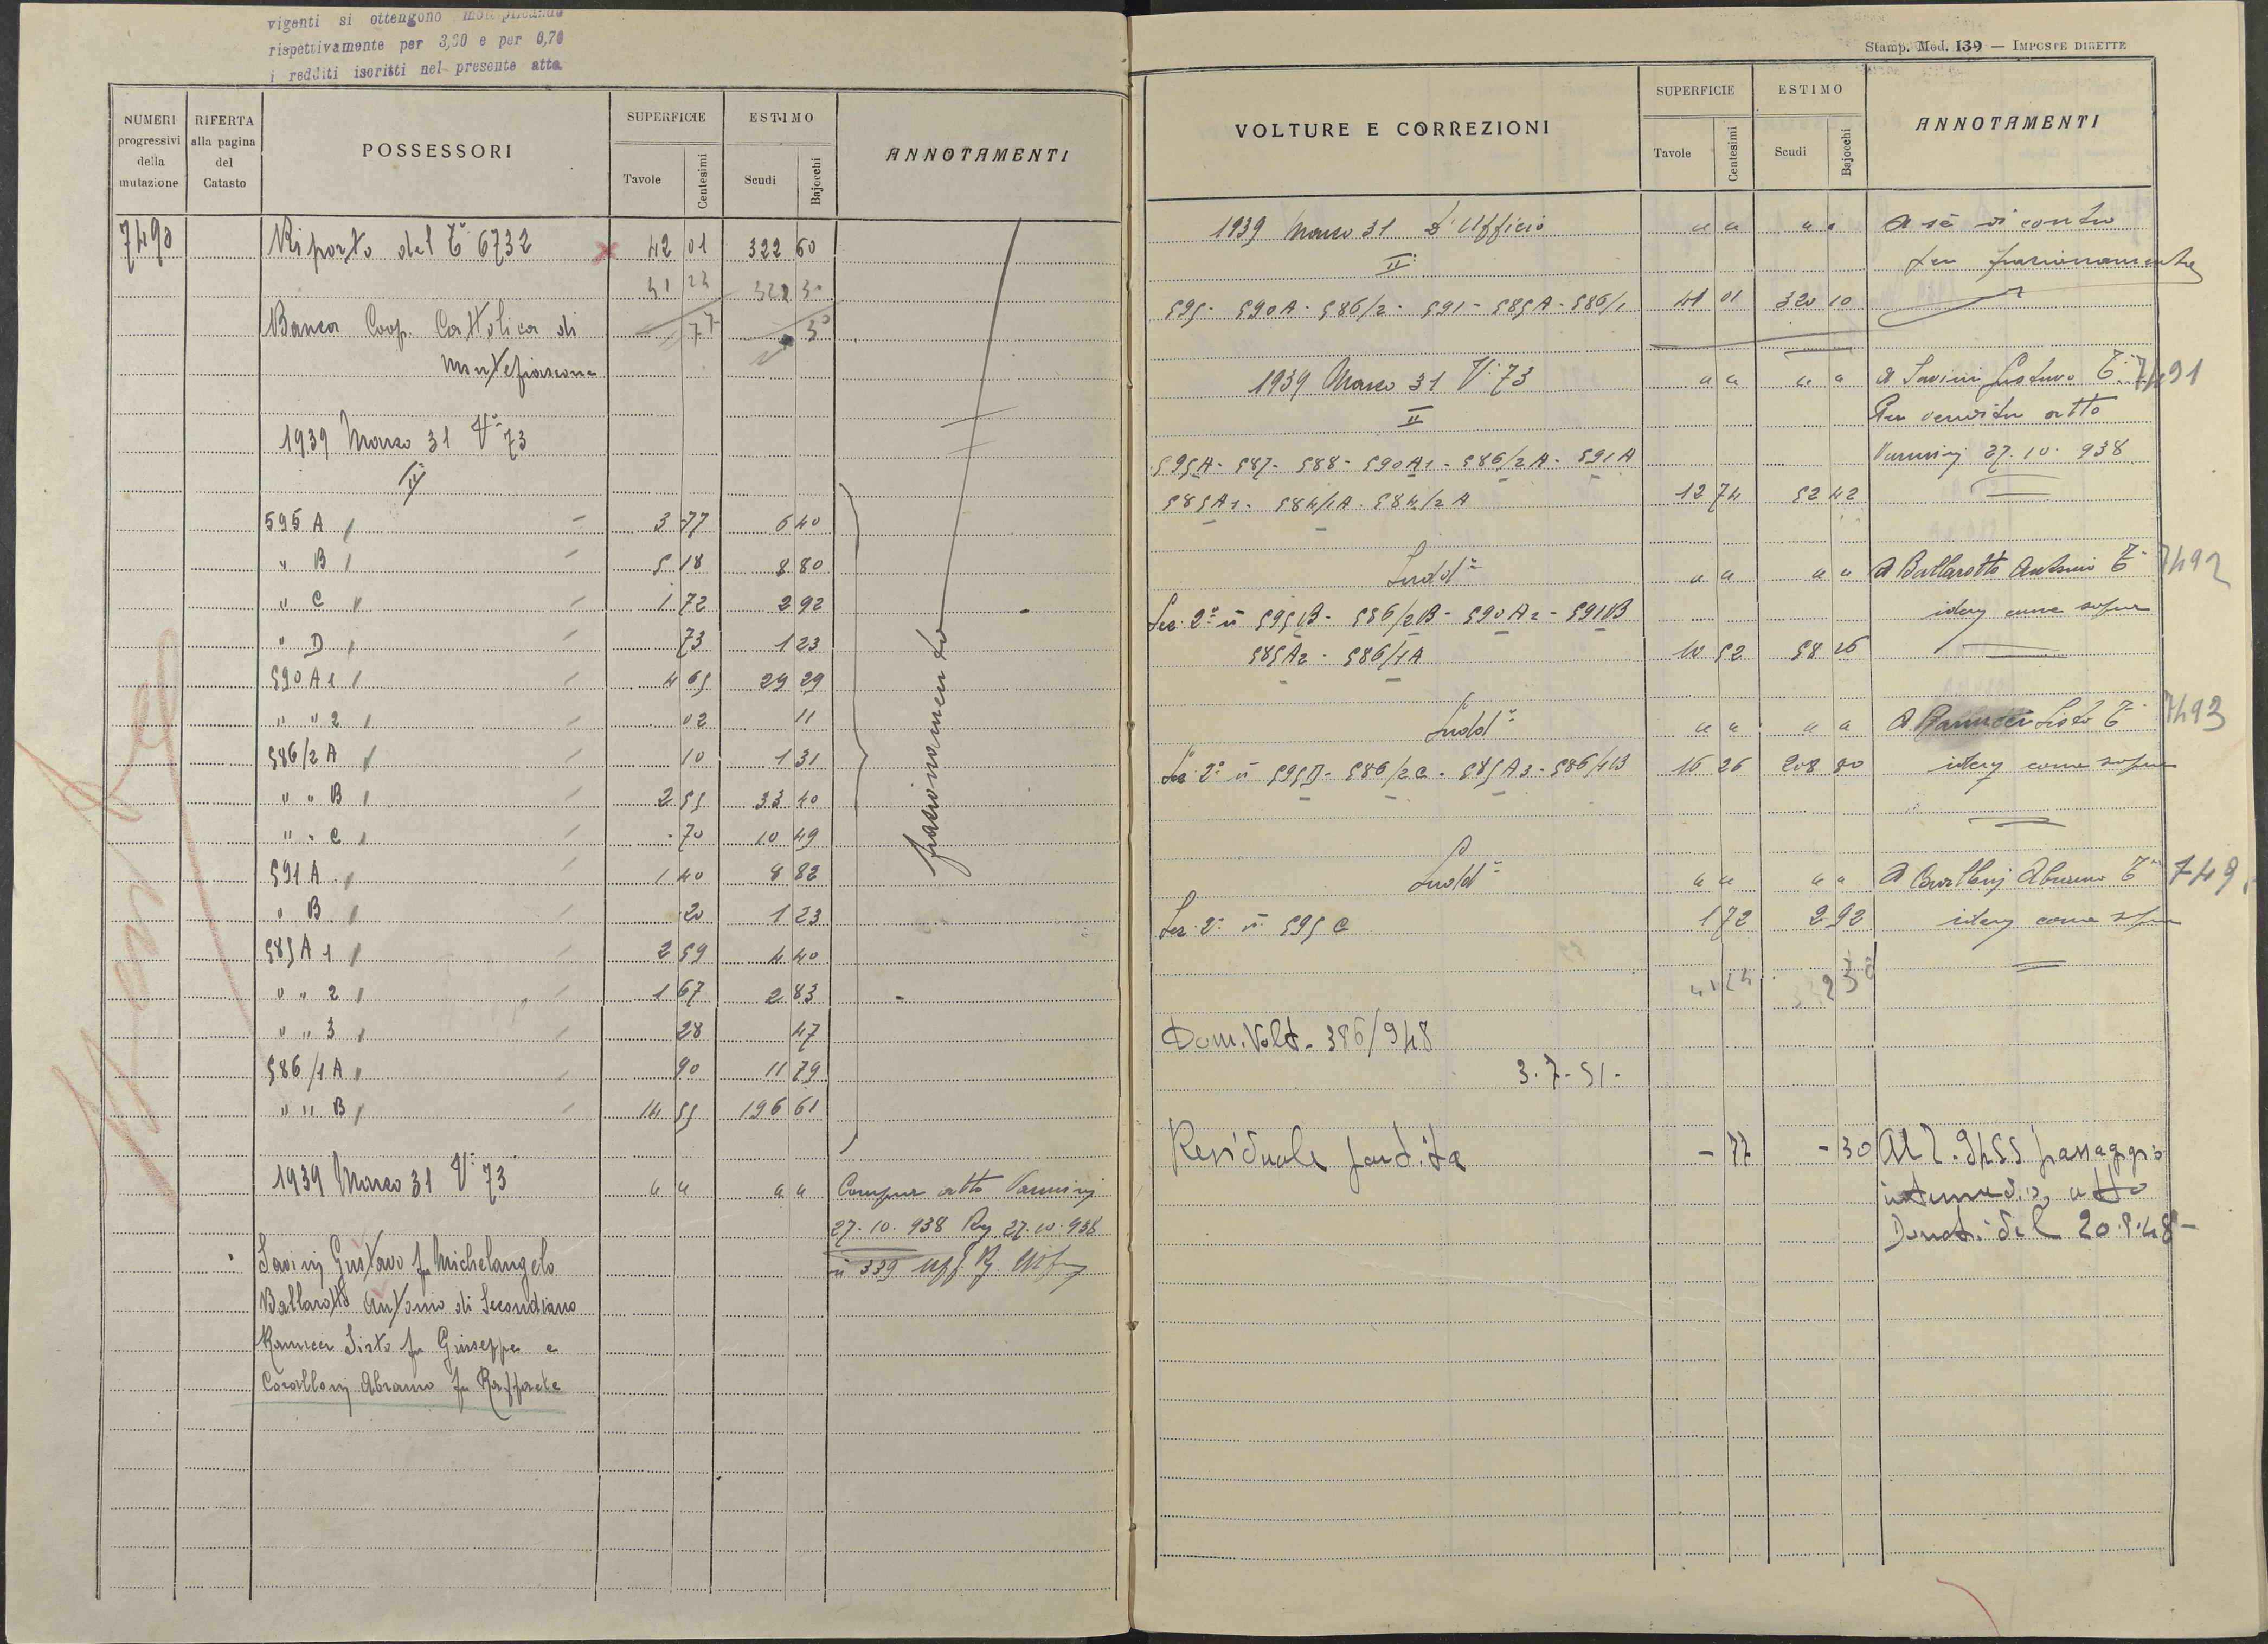 vigenti si ottengono moltiplicando
rispettivamente per 3,30 e per 0,70
i redditi iscritti nel presente atto
NUMERI progressivi della mutazione
RIFERTA alla pagina del Catasto
POSSESSORI
SUPERFICIE
Tavole Centesimi
ESTIMO
Scudi Bajocchi
ANNOTAMENTI
7490 Riporto del T° 6732 42 01 322 60
41 24
Banca Coop. Cattolica di 77 30
Montefiascone
1939 Marzo 31 V° 73
II
595 A 3 77 6 40
" B 5 18 8 80
" C 1 72 2 92
" D 73 1 23
590 A 1 4 65 29 29
" " 2 02 11
586/2 A 10 1 31
" " B 2 55 33 40
" " C 70 10 49
591 A 1 40 8 82
" B 20 1 23
585 A 1 2 59 4 40
" " 2 1 67 2 83
" " 3 28 47
586/1 A 90 11 79
" " B 14 55 196 61
frazionamento
1939 Marzo 31 V° 73 " " " " Compra atto Vannini
27.10.938 Rg 27.10.938
n° 339 Uff. Rg.
Savinj Gustavo fu Michelangelo
Ballarotto Antonio di Secondiano
Ranucci Sisto fu Giuseppe e
Corallonj Abramo fu Raffaele
Stamp. Mod. 139 — IMPOSTE DIRETTE
VOLTURE E CORREZIONI
SUPERFICIE
Tavole Centesimi
ESTIMO
Scudi Bajocchi
ANNOTAMENTI
1939 Marzo 31 D'Ufficio " " " " A sè di contro
II per frazionamento
595 - 590A - 586/2 - 591 - 585A - 586/1 41 01 320 10
1939 Marzo 31 V° 73 " " " " A Savini Gustavo T° 7491
II Per vendita atto
595A - 587 - 588 - 590A1 - 586/2A - 591A Vanninj 27.10.938
585A1 - 584/1A - 584/2A 12 74 52 42
Sudd° " " " " A Ballarotto Antonio T° 7492
Sez. 2° n° 595B - 586/2B - 590A2 - 591B idem come sopra
585A2 - 586/1A 10 52 58 26
Sudd° " " " " A Ranucci Sisto T° 7493
Sez. 2° n° 595D - 586/2C - 585A3 - 586/1B 16 26 208 80 idem come sopra
Sudd° " " " " A Abramo T° 749
Sez. 2° n° 595 C 1 72 2 92 idem come sopra
41 24
Dom. Volt. 386/948
3.7.51.
Residuale partita - 77 - 30 Al T. 9455 passaggio
intermedio, atto
Donati del 20.5.48